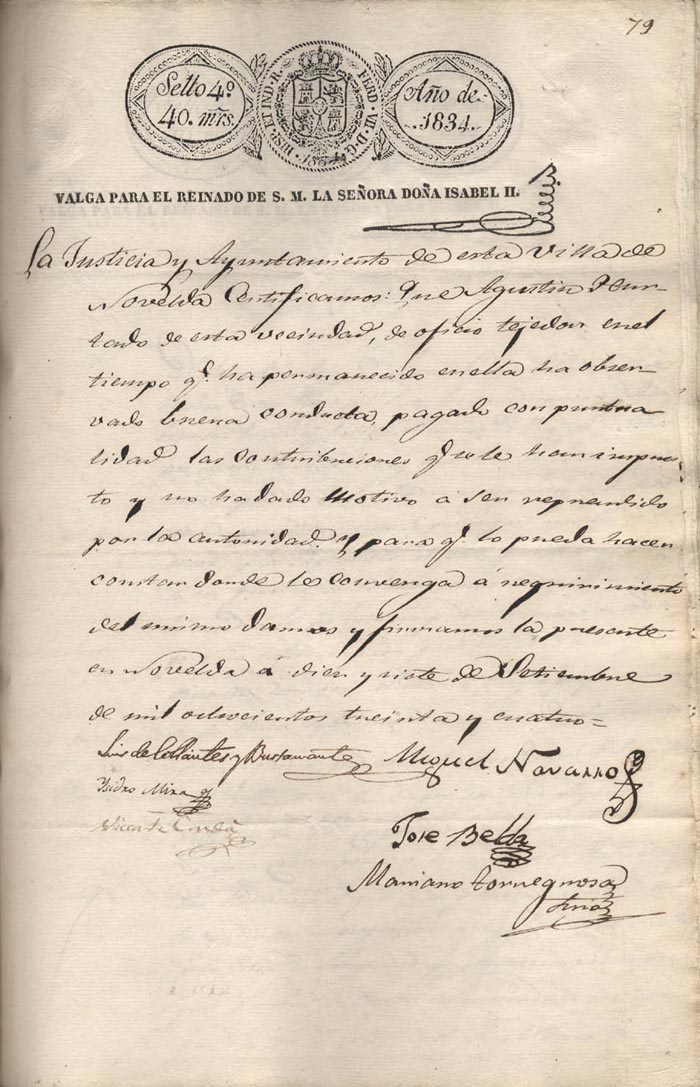 79
Sello 4º
40. mrs.
HISP. ET IND. R. FERD. VII. D. G.
1834
Año de
1834.
VALGA PARA EL REINADO DE S. M. LA SEÑORA DOÑA ISABEL II.
La Justicia y Ayuntamiento de esta Villa de
Novelda Certificamos: Que Agustin Hur-
tado de esta vecindad, de oficio tejedor en el
tiempo q.e ha permanecido en ella ha obser-
vado buena conducta, pagado con puntua-
lidad las contribuciones q.e se le han impues-
to y no ha dado motivo á ser reprendido
por la autoridad. Y para q.e lo pueda hacer
constar donde les convenga á requirimiento
del mismo damos y firmamos la presente
en Novelda á diez y siete de Setiembre
de mil ochocientos treinta y cuatro=
Luis de Collantes y Bustamante Miguel Navarro
Isidro Mira
Vicente Cerdá
Jose Bella
Mariano Torregrosa
Srio